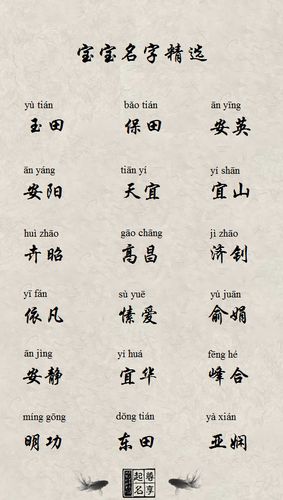 宝宝名字精选
yù tián bǎo tián ān yīng
玉田 保田 安英
ān yáng tiān yí yí shān
安阳 天宜 宜山
huì zhāo gāo chāng jì zhāo
卉昭 高昌 济钊
yī fán sù yuē yú juān
依凡 愫爱 俞娟
ān jìng yí huá fēng hé
安静 宜华 峰合
míng gōng dōng tián yà xián
明功 东田 亚娴
尊享
起名